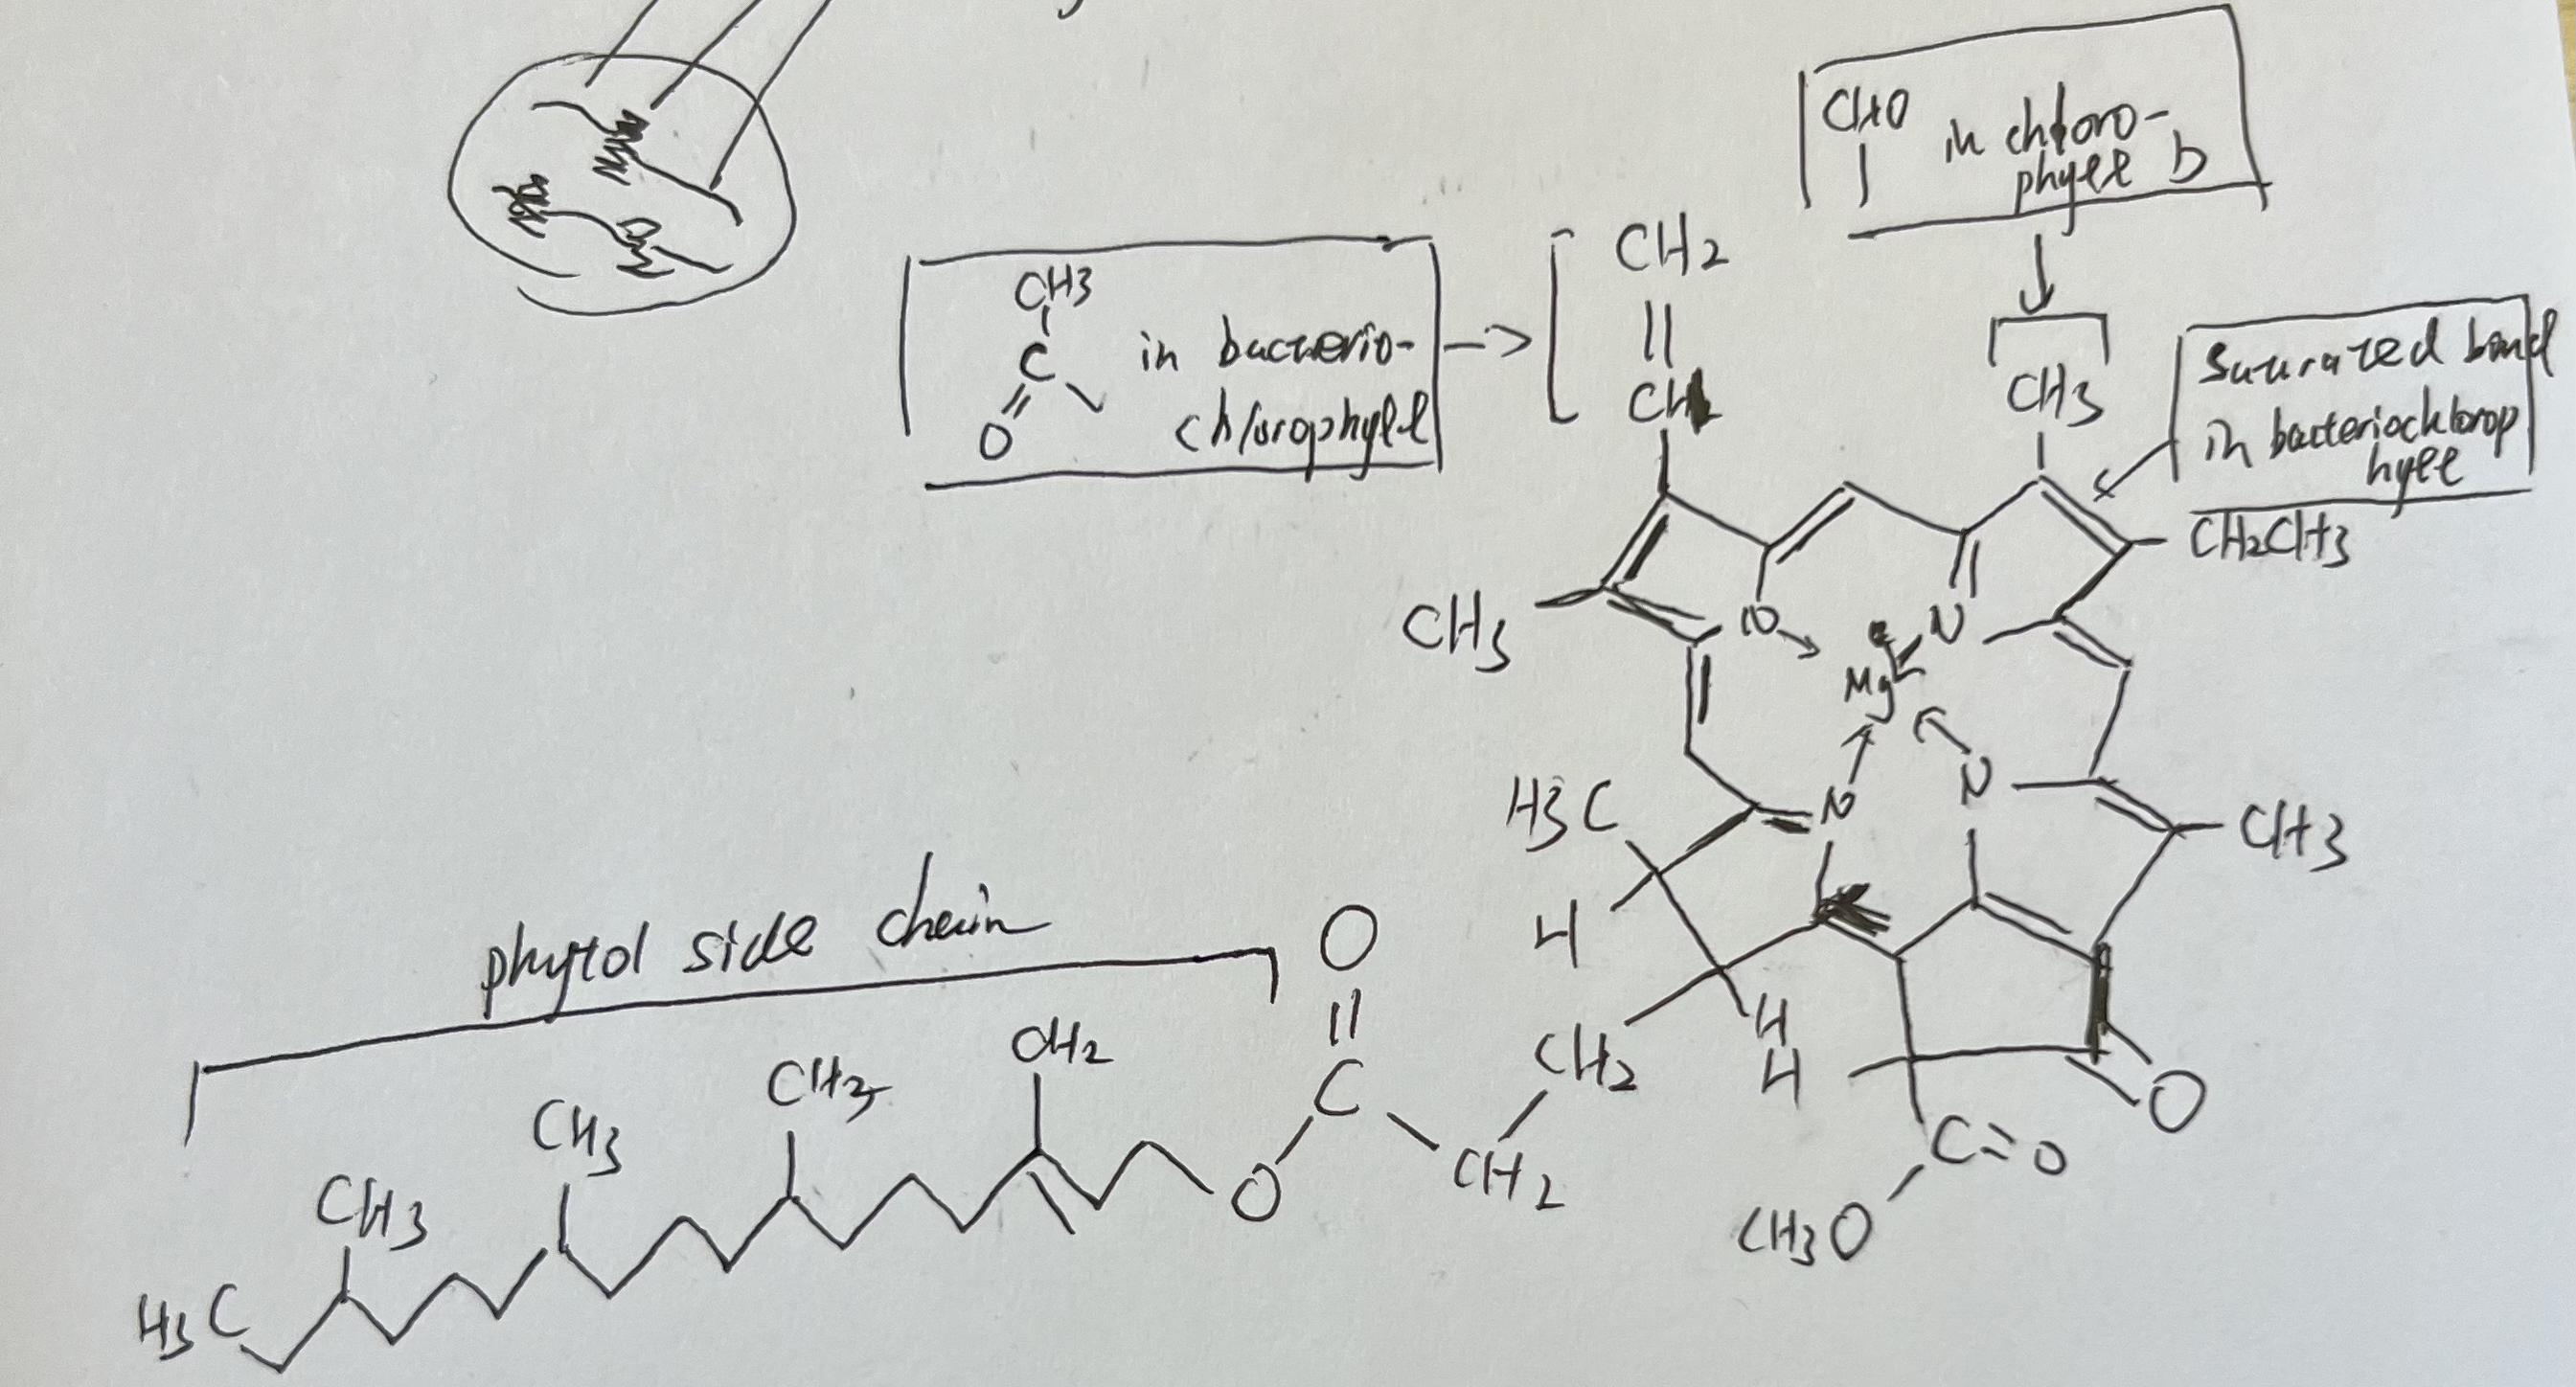 CHO
in chloro-
phyll b
CH2
CH3
in bacterio-
C
O
chlorophyll
CH
CH3
Saturated bond
in bacteriochlorop
hyll
CH2CH3
CH3
N
N
Mg
N
N
H3C
CH3
H
phytol side chain
O
H
H
CH2
CH2
CH3
C
O
CH3
C=O
CH2
O
CH3
CH3O
H3C